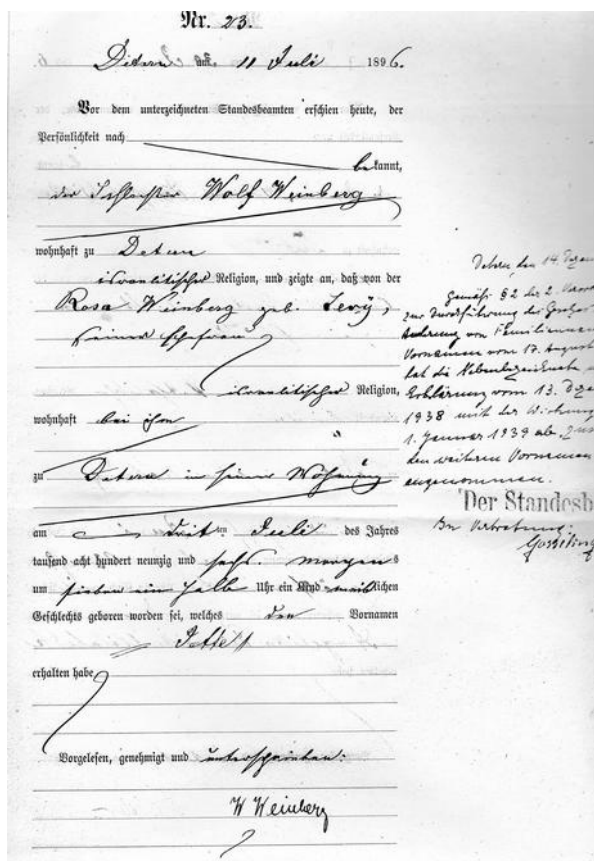 Nr. 23.
Detern am 11 Juli 1896.
Vor dem unterzeichneten Standesbeamten erschien heute, der
Persönlichkeit nach
bekannt,
der Schlachter Wolf Weinberg
wohnhaft zu Detern
israelitischer Religion, und zeigte an, daß von der
Rosa Weinberg geb. Levy,
seiner Ehefrau
israelitischer Religion,
wohnhaft bei ihm
zu Detern in seiner Wohnung
am ten Juli des Jahres
tausend acht hundert neunzig und sechs morgens
um sieben ein halb Uhr ein Kind weiblichen
Geschlechts geboren worden sei, welches den Vornamen
Jette
erhalten habe
Vorgelesen, genehmigt und unterschrieben:
W Weinberg
Detern, den 14. Dezem
Gemäß §2 der 2. Verord
zur Durchführung des Gesetzes
Änderung von Familiennam
Vornamen vom 17. August
hat die Nebenbezeichnete
Erklärung vom 13. Deze
1938 mit der Wirkung
1. Januar 1939 ab,
den weiteren Vornamen
angenommen.
Der Standesb
In Vertretung: